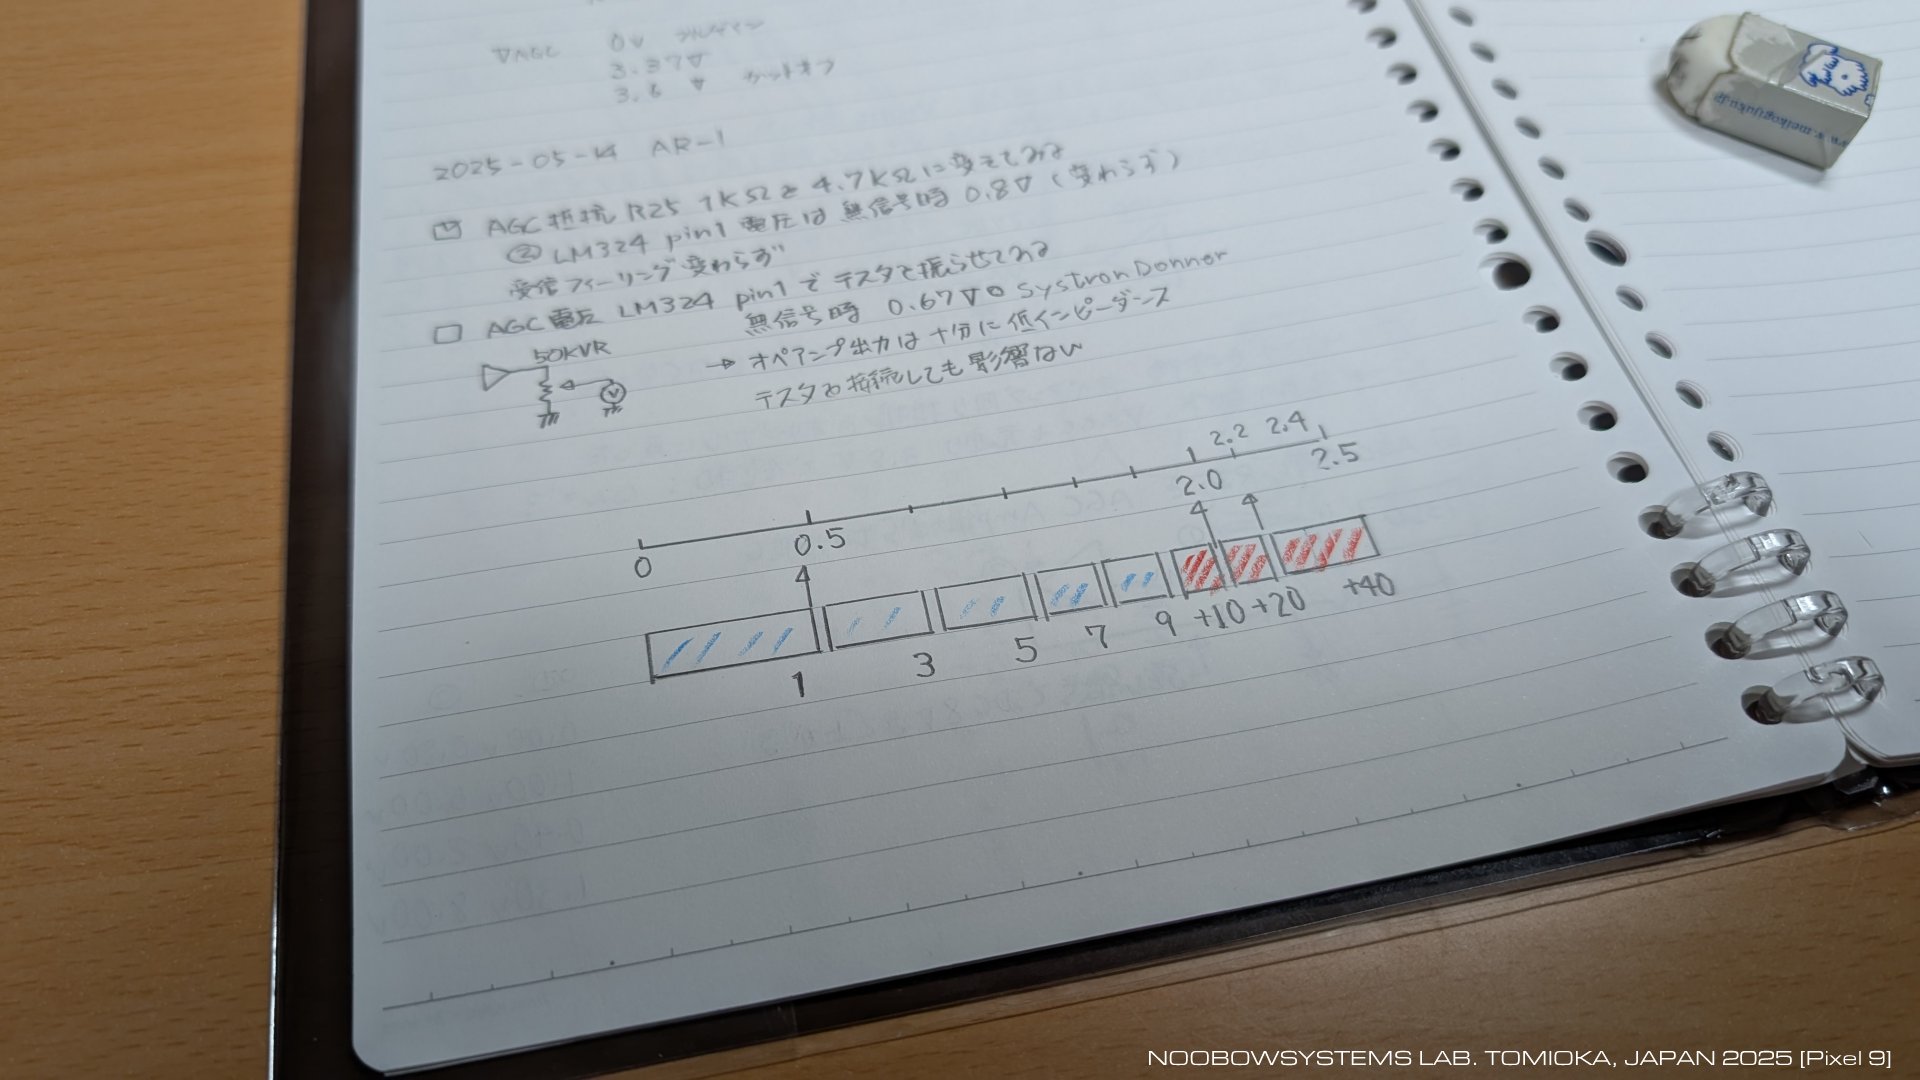 VAGC 0V フルゲイン
3.37V
3.6 V カットオフ
2025-05-14 AR-1
AGC抵抗 R25 1kΩを4.7kΩに変えてみる
② LM324 pin1 電圧は 無信号時 0.8V (変わらず)
受信フィーリング変わらず
AGC電圧 LM324 pin1でテスタを振らせてみる
無信号時 0.67V Systron Donner
50KVR
→ オペアンプ出力は十分に低インピーダンス
V
テスタを接続しても影響ない
0 0.5 2.0 2.2 2.4 2.5
1 3 5 7 9 +10 +20 +40
www.meikogijuku.jp
NOOBOWSYSTEMS LAB. TOMIOKA, JAPAN 2025 [Pixel 9]